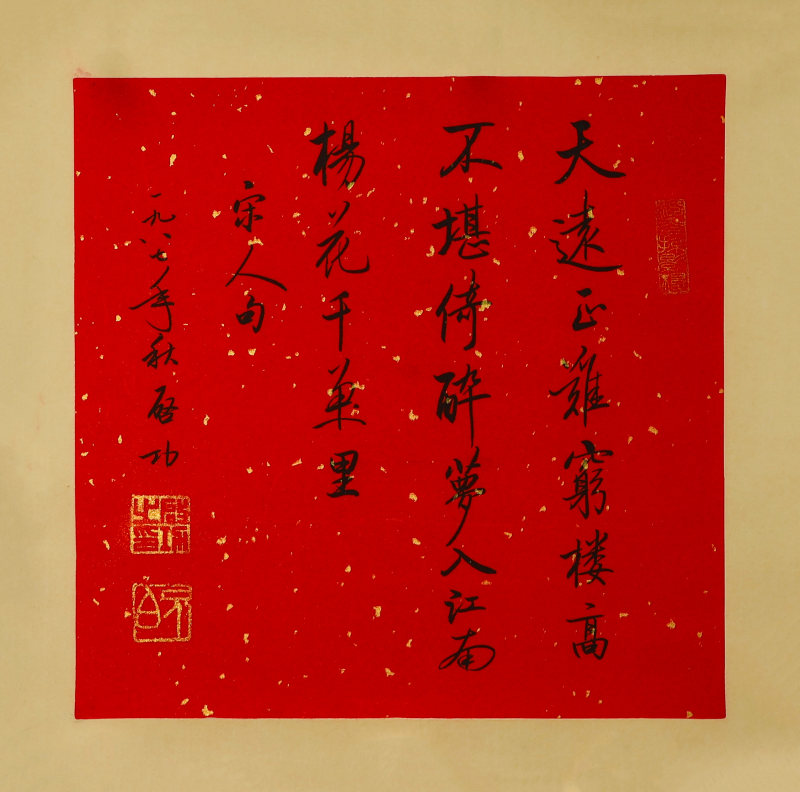 天遠正難窮楼高
不堪倚醉夢入江南
楊花千萬里
宋人句
一九八七年秋启功